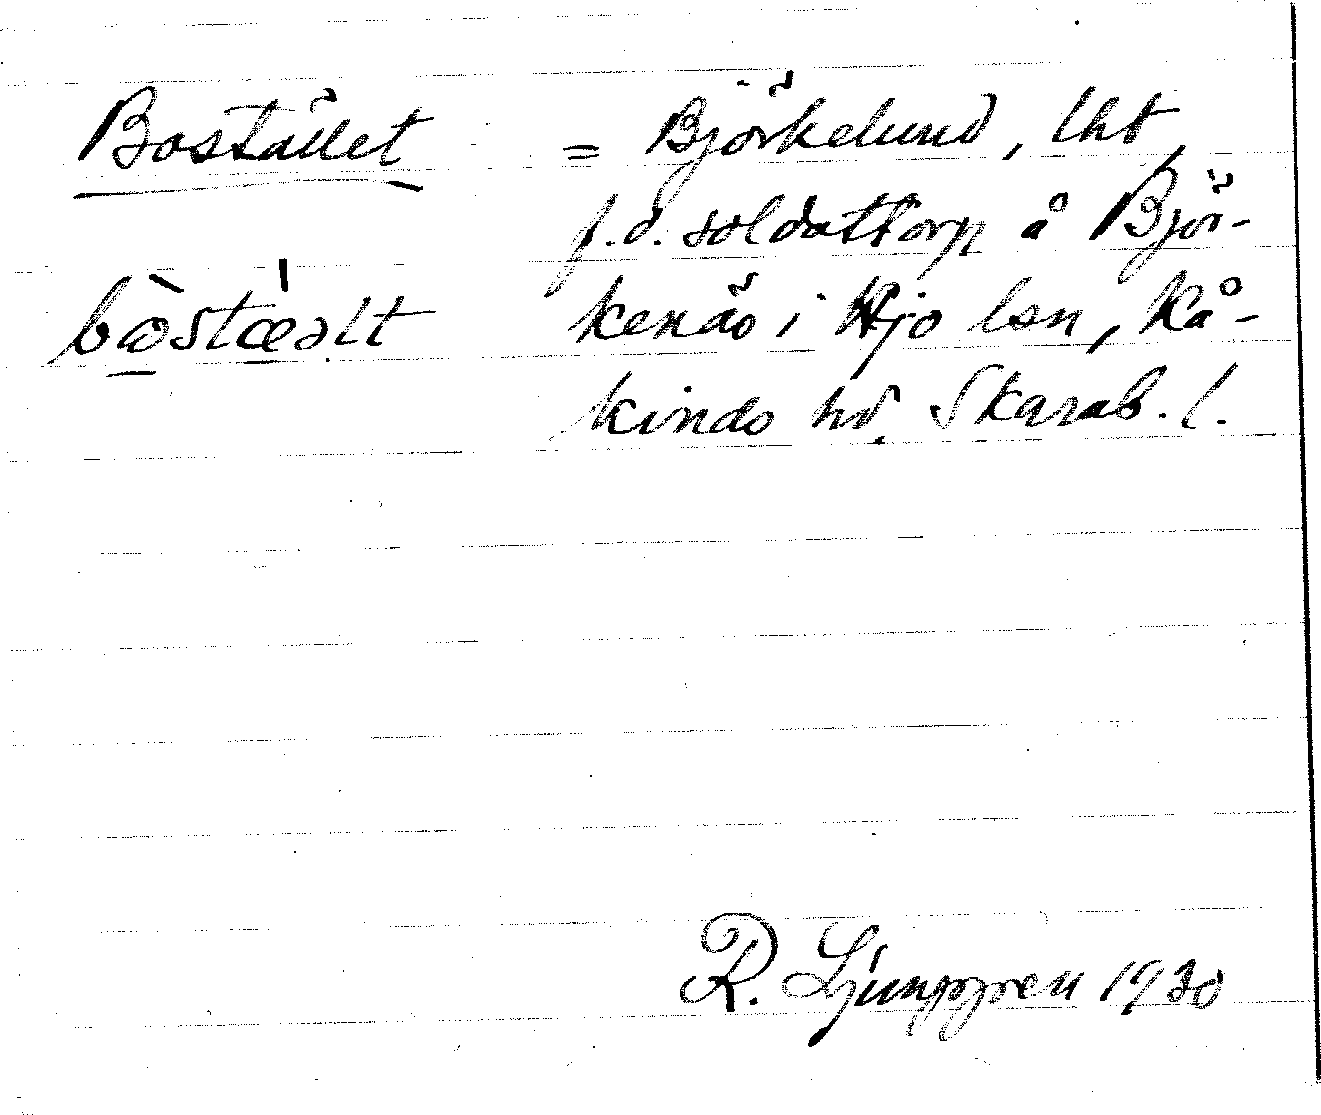 Bostället = Björkelund, lht,
f.d. soldattorp å Björ-
kenäs i Hjo lsn, Kå-
kinds hd. Skarab. l.
R. Ljunggren 1930